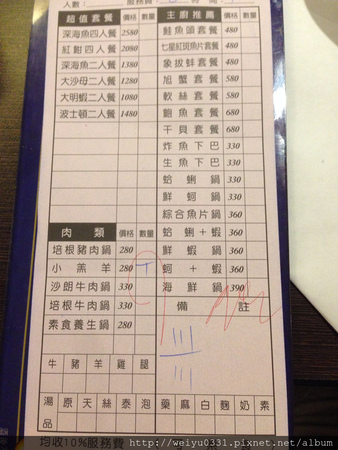 人數：
服務費
超值套餐 價格 數量
深海魚四人餐 2580
紅魽四人餐 2080
深海魚二人餐 1380
大沙母二人餐 1280
大明蝦二人餐 1080
波士頓二人餐 1480
肉類 價格 數量
培根豬肉鍋 280
小羔羊 280
沙朗牛肉鍋 330
培根牛肉鍋 330
素食養生鍋 280
主廚推薦 價格 數量
鮭魚頭套餐 480
七星紅斑魚片套餐 480
象拔蚌套餐 480
旭蟹套餐 380
軟絲套餐 480
鮑魚套餐 680
干貝套餐 680
炸魚下巴 330
生魚下巴 330
蛤蜊鍋 330
鮮蚵鍋 330
綜合魚片鍋 360
蛤蜊+蝦 360
鮮蝦鍋 360
蚵+蝦 360
海鮮鍋 390
備註
牛豬羊雞腿
湯品 原天絲泰泡藥麻白麴奶素
均收10%服務費
http://weiyu0331.pixnet.net/album